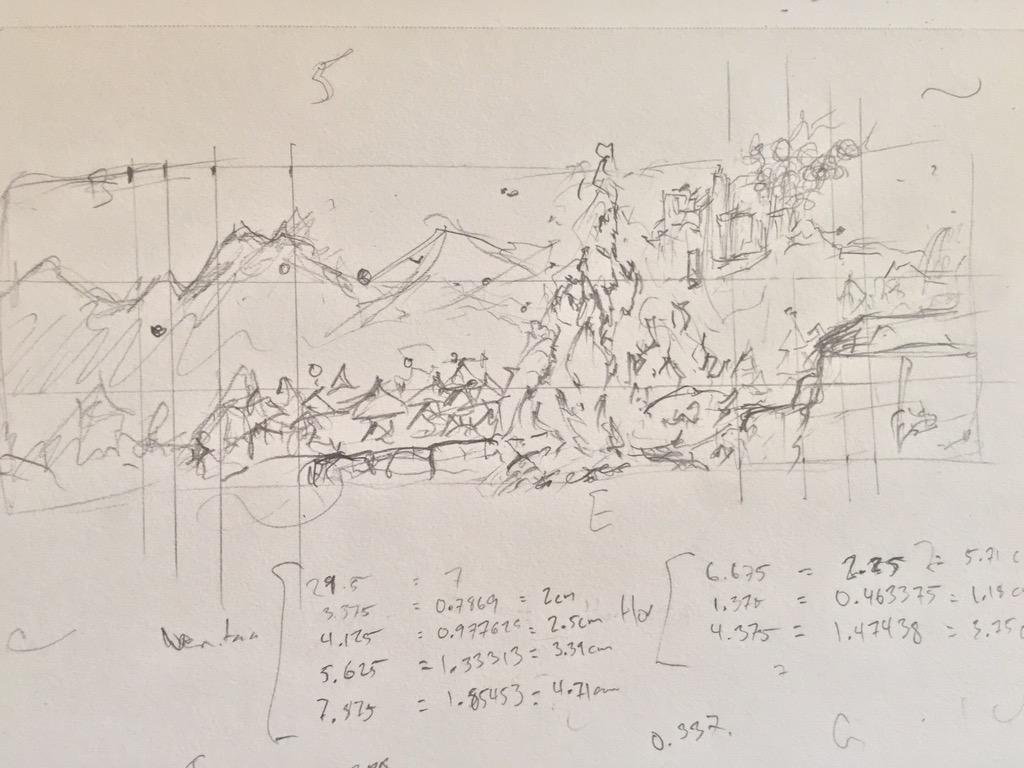 5
B
E
29.5 = 7
3.375 = 0.7869 = 2cm
4.125 = 0.977625 = 2.5cm
5.625 = 1.33313 = 3.39cm
7.875 = 1.85453 = 4.71cm
6.675 = 2.25 = 5.71 c
1.375 = 0.463375 = 1.18c
4.375 = 1.47438 = 3.75c
C
0.337.
G